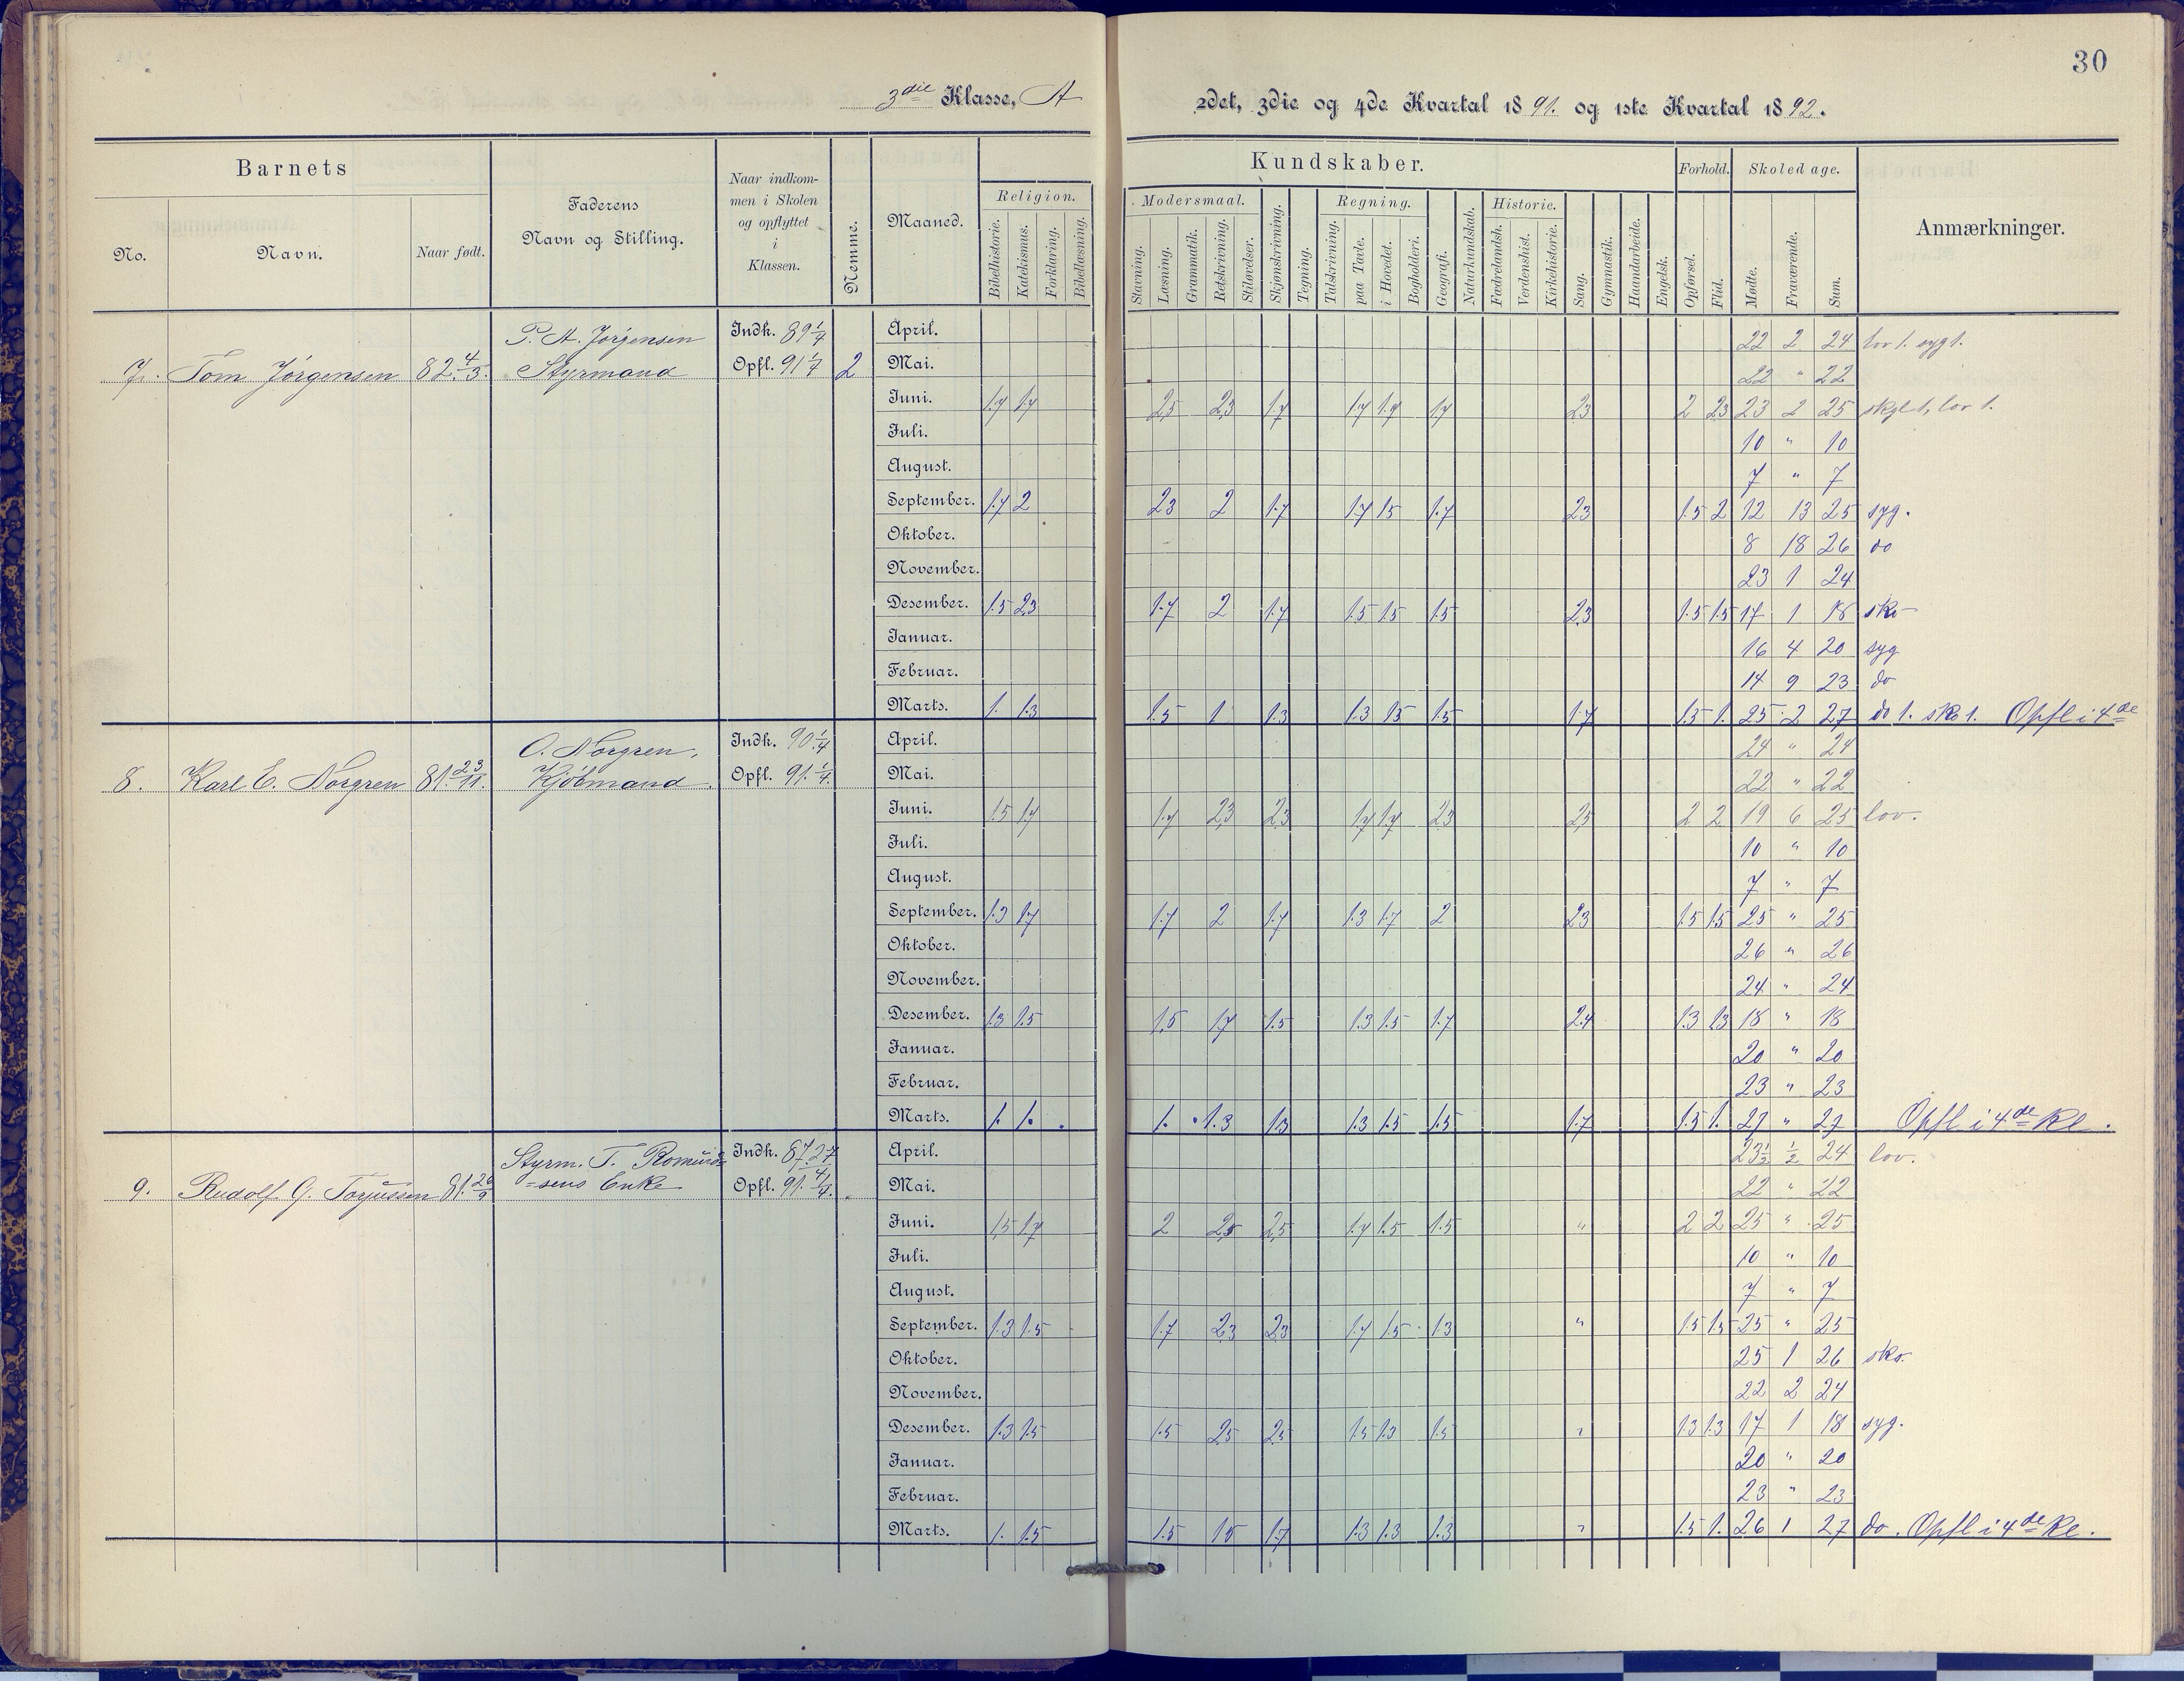 30
3die Klasse, A
2det, 3die og 4de Kvartal 1891. og 1ste Kvartal 1892.
Barnets
No.
Navn.
Naar født.
Faderens
Navn og Stilling.
Naar indkom-
men i Skolen
og opflyttet
i
Klassen.
Nemme.
Maaned.
Kundskaber.
Religion.
Bibelhistorie. Katekismus. Forklaring. Bibellæsning.
Modersmaal.
Stavning. Læsning. Grammatik. Retskrivning. Stiløvelser.
Skjønskrivning. Tegning.
Regning.
Talskrivning. paa Tavle. i Hovedet. Bogholderi.
Geografi. Naturkundskab.
Historie.
Fædrelandsh. Verdenshist. Kirkehistorie.
Sang. Gymnastik. Haandarbeide. Engelsk.
Forhold.
Opførsel. Flid.
Skoledage.
Mødte. Fraværende. Sum.
Anmærkninger.
7. Tom Jörgensen 82 4/3. P. A. Jörgensen Styrmand Indk. 89 1/4 Opfl. 91 1/4 2
April. 22 2 24 lov 1. syg 1.
Mai. 22 " 22
Juni. 1.7 1.7 2,5 2,3 1.7 1.7 1.7 1.7 2,3 2 2,3 23 2 25 lov 1.
Juli. 10 " 10
August. 7 " 7
September. 1.7 2 23 2 1.7 1.7 1.5 1.7 23 1.5 2 12 13 25 syg.
Oktober. 8 18 26 do
November. 23 1 24
Desember. 1.5 2,3 1.7 2 1.7 1.5 1.5 1.5 2,3 1.5 1.5 17 1 18 sko
Januar. 16 4 20 syg
Februar. 14 9 23 do
Marts. 1. 1.3 1.5 1 1.3 1.3 1.5 1.5 1.7 1.5 1. 25 2 27 do 1. sko 1. Opfl i 4de
8. Karl E. Norgren 81. 23/11. O. Norgren, Kjöbmand. Indk. 90 1/4 Opfl. 91. 1/4.
April. 24 " 24
Mai. 22 " 22
Juni. 1.5 1.7 1.7 2,3 2,3 1.7 1.7 2,3 2,5 2 2 19 6 25 lov.
Juli. 10 " 10
August. 7 " 7
September. 1.3 1.7 1.7 2 1.7 1.3 1.7 2 2,3 1.5 1.5 25 " 25
Oktober. 26 " 26
November. 24 " 24
Desember. 1.3 1.5 1.5 1.7 1.5 1.3 1.5 1.7 2.4 1.3 1.3 18 " 18
Januar. 20 " 20
Februar. 23 " 23
Marts. 1. 1. 1. 1.3 1.3 1.3 1.5 1.5 1.7 1.5 1. 27 " 27 Opfl i 4de Kl.
9. Rudolf G. Torjussen 81. 26/9 Styrm. T. Romund=
=sens Enke Indk. 87. 27/4 Opfl. 91. 1/4.
April. 23 1/2 1/2 24 lov.
Mai. 22 " 22
Juni. 1,5 1.7 2 2,5 2,5 1.7 1.5 1.5 " 2 2 25 " 25
Juli. 10 " 10
August. 7 " 7
September. 1.3 1.5 1.7 2,3 2,3 1.7 1.5 1.3 " 1.5 1.5 25 " 25
Oktober. 25 1 26 sko.
November. 22 2 24
Desember. 1.3 1.5 1.5 2,5 2,5 1.5 1.3 1.5 " 1.3 1.3 17 1 18 syg.
Januar. 20 " 20
Februar. 23 " 23
Marts. 1. 1.5 1.5 1.5 1.7 1.3 1.3 1.3 " 1.5 1. 26 1 27 do. Opfl i 4de Kl.